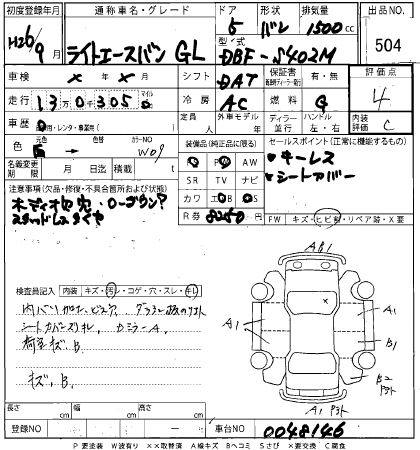 初度登録年月 通称車名・グレード ドア 形状 排気量 出品NO.
H26/9月 ライトエースバン GL 5 バン 1500cc 504
型式 DBF-S402M
車検 × 年 × 月 シフト DAT 保証書 有・無 評価点
走行 13万0305 マイル 冷房 AC 燃料 G 4
車歴 自家用・レンタ・事業用( ) 定員 人 外車モデル 年 ディーラー 並行 ハンドル 左・右 内装評価 C
元色 → 色替 カラーNO W09 装備品(純正品に限る) セールスポイント(正常に機能するもの)
PS PW AW キーレス
名義変更期限 月 日 積載 t SR TV ナビ シートカバー
注意事項(欠品・修復・不具合箇所および状態) カワ エアB
オーディオ
スタッドレスタイヤ R券 8250 FW キズ・ヒビ割・リペア跡・X要
検査員記入 内装 キズ・汚レ・コゲ・穴・スレ・キレ
AB1
シートカバースリキレ、 カミラーA、
A1 A1
荷室キズ、B、 B1
キズ、B、 B2
A1
長さ cm 幅 cm 高さ cm
登録NO - 車台NO 0048146
P要塗装 W波有り XX取替済 A線キズ Bヘコミ Sさび X要交換 C腐食